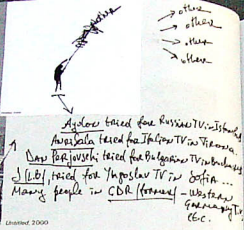 other
other
other
other
Aydan tried for Russian TV in Istanbul
tried for Italian TV in Tirana
Dan Perjovschi tried for Bulgarian TV in Bucharest
I (L.B), tried for Yugoslav TV in Sofia ...
Many people in GDR (former) - Western
Germany TV
Untitled, 2000